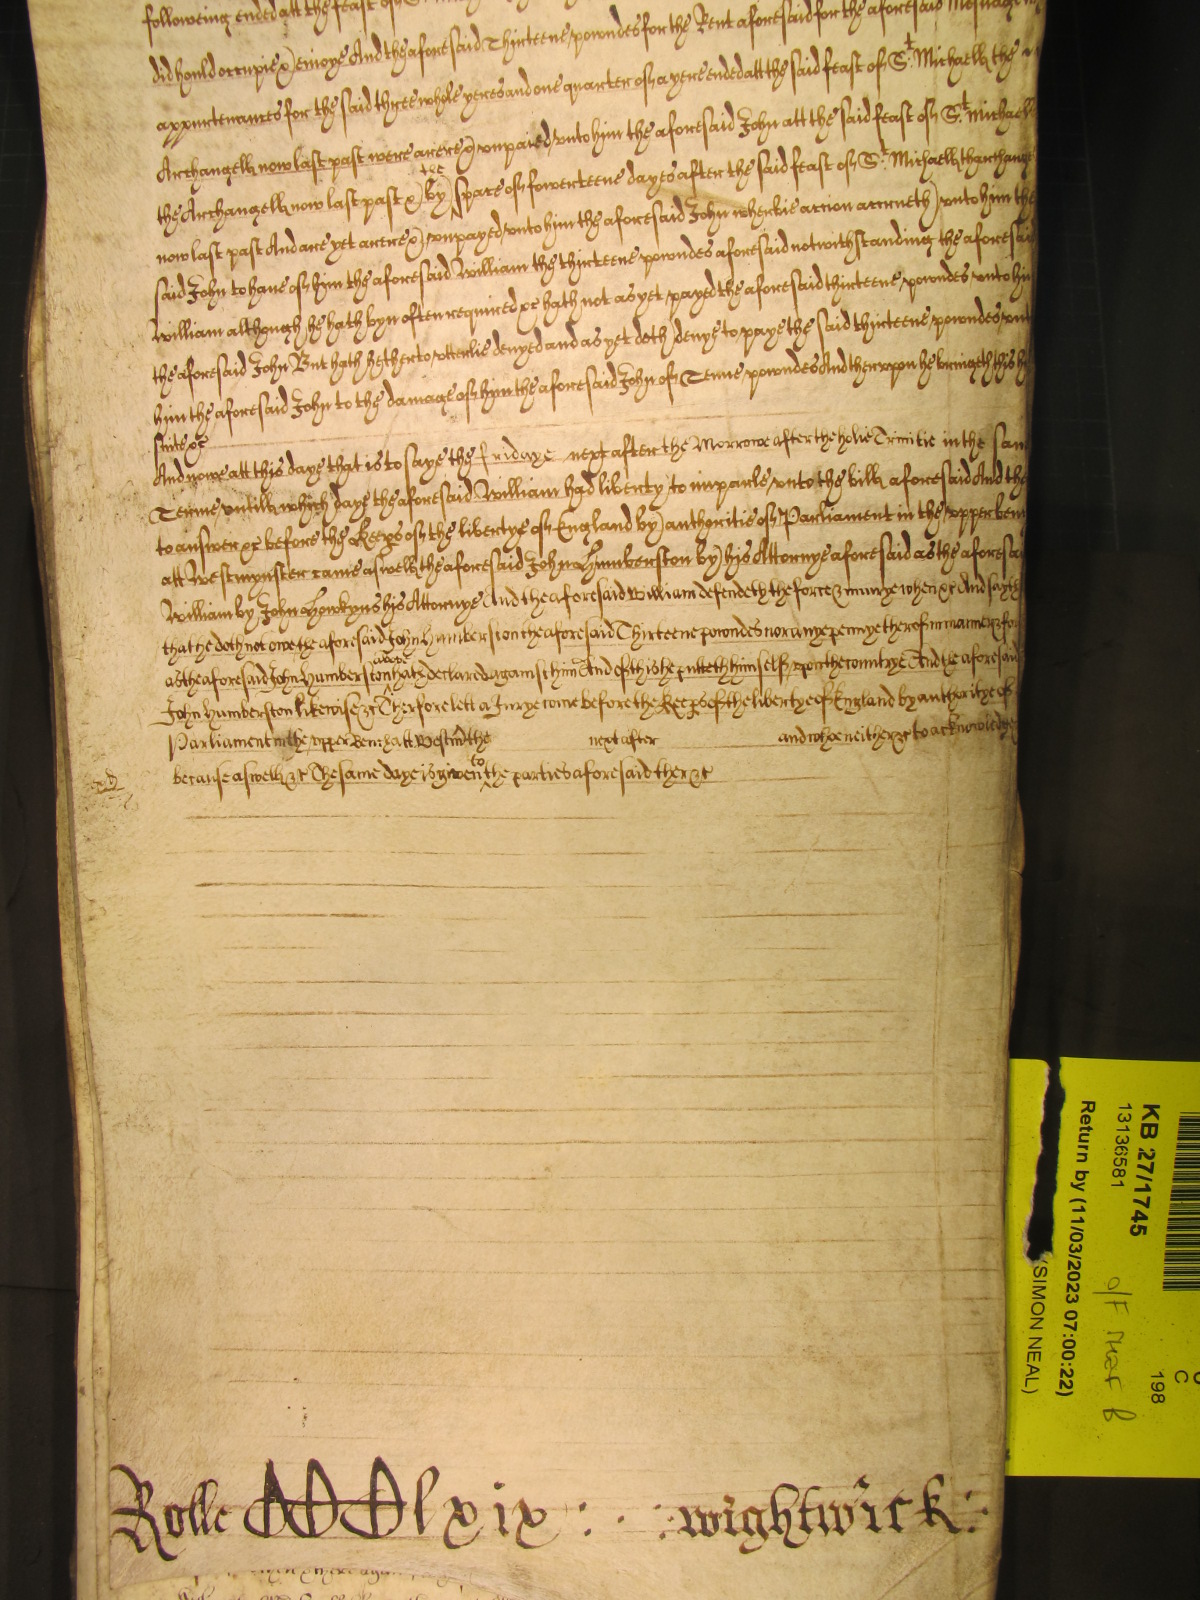 followeing ended att the feast of S
did hould occupie & enioye And the aforesaid Thirteene powndes for the Rent aforesaid for the aforesaid Messuage
appurtenances for the said three whole yeres and one quarter of a yere ended att the said feast of St Michaell the
Archangell now last past were arere & vnpaied vnto him the aforesaid John att the said feast of St Michaell
the Archangell now last past & by the space of fowerteene dayes after the said feast of St Michaell tharchangell
now last past And are yet arere & vnpayed vnto him the aforesaid John wherbie accion accrueth vnto him the
said John to haue of him the aforesaid William the thirteene powndes aforesaid notwithstanding the aforesaid
William although he hath byn often required &c hath not as yet payed the aforesaid thirteene powndes vnto him
the aforesaid John But hath hetherto vtterlie denyed and as yet doth denye to paye the said thirteene powndes vnto
him the aforesaid John to the damage of him the aforesaid John of Tenne powndes And therevpon he bringeth this his
suite &c
And nowe att this daye that is to saye the fridaye next after the Morrowe after the holie Trinitie in the same
Terme vntill which daye the aforesaid William had liberty to imparle vnto the bill aforesaid And then
to answer &c before the Keeps of the libertye of England by authoritie of Parliament in the vpper bench
att Westmynster came aswell the aforesaid John Humberston by his Attornye aforesaid as the aforesaid
William by John Howkyns his Attornye And the aforesaid William defendeth the force & iniurye when &c And sayth
that he doth not owe the aforesaid John Humberston the aforesaid Thirteene powndes nor anye pennye therof in maner & forme
as the aforesaid John Humberston above hath declared against him And of this he putteth himself vpon the countrye And the aforesaid
John Humberston likewise &c Therfore lett a Jurye come before the Keeps of the libertye of England by authoritye of
Parliament in the vpper bench att Westm the next after and whoe neither &c to acknowledge
because aswell &c The same daye is given to the parties aforesaid ther &c
Rolle lxix : : wightwick :
KB 27/1745
13136581
Return by (11/03/2023 07:00:22)
(SIMON NEAL)
198
C